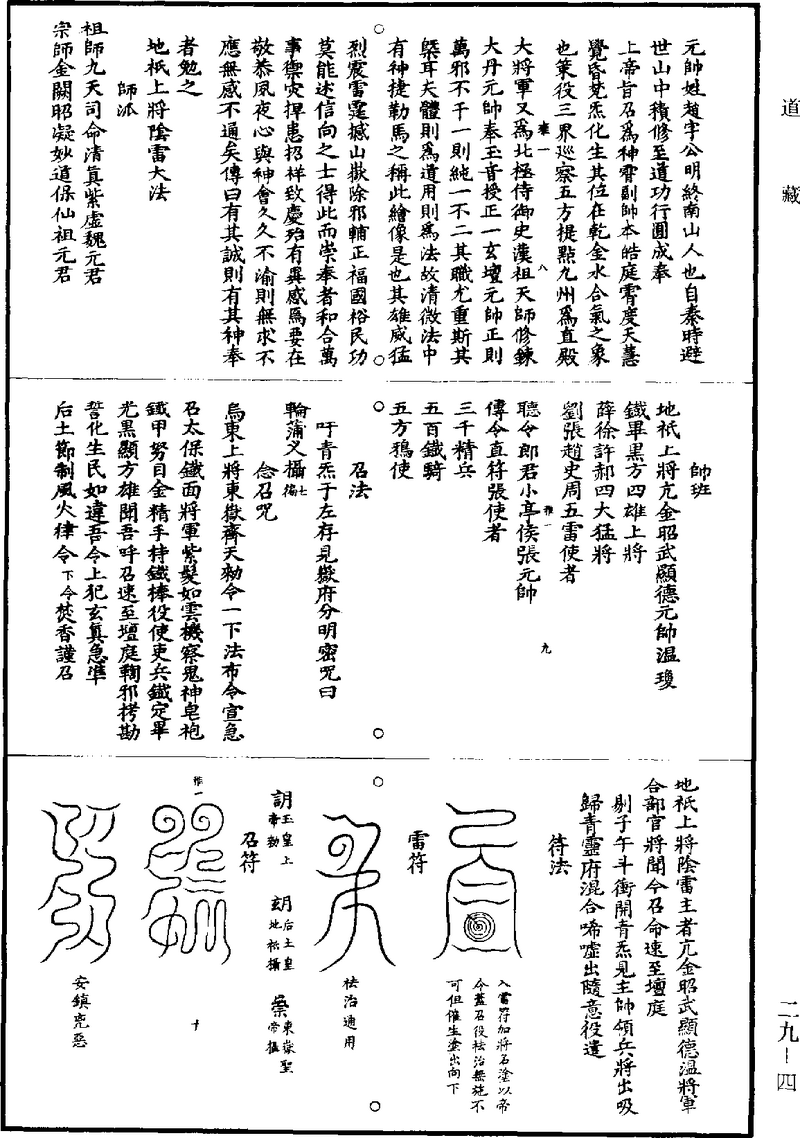 道藏
元帥姓趙字公明終南山人也自秦時避
世山中積修至道功行圓成奉
上帝旨召爲神霄副帥本皓庭霄度天慧
覺昏梵炁化生其位在乾金水合氣之象
也策役三界巡察五方提點九州爲直殿
大將軍又爲北極侍御史漢祖天師修鍊
雜一 八
大丹元帥奉玉音授正一玄壇元帥正則
萬邪不干一則純一不二其職尤重斯其
槩耳夫體則爲道用則爲法故清微法中
有神捷勒馬之稱此繪像是也其雄威猛
烈震雷霆撼山嶽除邪輔正福國裕民功
莫能述信向之士得此而崇奉者和合萬
事禦灾捍患招祥致慶殆有異感焉要在
敬恭夙夜心與神會久久不渝則無求不
應無感不通矣傳曰有其誠則有其神奉
者勉之
地祇上將陰雷大法
師派
祖師九天司命清真紫虛魏元君
宗師金闕昭凝妙道保仙祖元君
帥班
地祇上將亢金昭武顯德元帥温瓊
鐵畢黑方四雄上將
薛徐許郝四大猛將
劉張趙史周五雷使者
聽令郎君小亭侯張元帥
雜一 九
傳令直符張使者
三千精兵
五百鐵騎
五方鴉使
召法
吁青炁于左存見嶽府分明密咒曰
輪蒲义攝七徧
念召咒
烏東上將東嶽齊天勑令一下法布令宣急
召太保鐵面將軍紫髮如雲機察鬼神皂袍
鐵甲努目金精手持鐵棒役使吏兵鐵定畢
光黑顯方雄聞吾呼召速至壇庭鞫邪拷勘
誓化生民如違吾令上犯玄真急準
后土節制風火律令下令焚香謹召
地祇上將陰雷主者亢金昭武顯德温將軍
合部官將聞令召命速至壇庭
剔子午斗衝開青炁見主帥領兵將出吸
歸青靈府混合唏噓出隨意役遣
符法
入雷符加將名塗以帝
令蓋召役祛治無施不
可但催生塗出向下
雷符
祛治通用
玉皇上帝勑
后土皇地祇攝
東嶽聖帝攝
召符
雜一 十
安鎮兇惡
二九-四